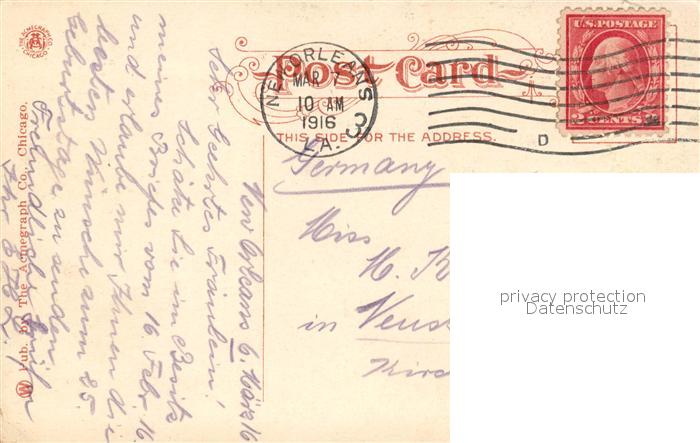 THE ACMEGRAPH CO.
CHICAGO
Post Card
NEW ORLEANS
MAR
10 AM
1916
LA.
3
D
U.S. POSTAGE
2 CENTS 2
THIS SIDE FOR THE ADDRESS.
Germany
Miss
M. K
in Neuss
Kirc
New Orleans 6. März 16
Sehr Geehrtes Fräulein!
Schätze Sie im Besitz
meines Briefes vom 16 Febr 16.
und erlaube mir Ihnen die
besten Wünsche zum 25.
Geburtstage zu senden.
Freundliche Grüße
Ihr
W Pub. by The Acmegraph Co., Chicago.
privacy protection
Datenschutz